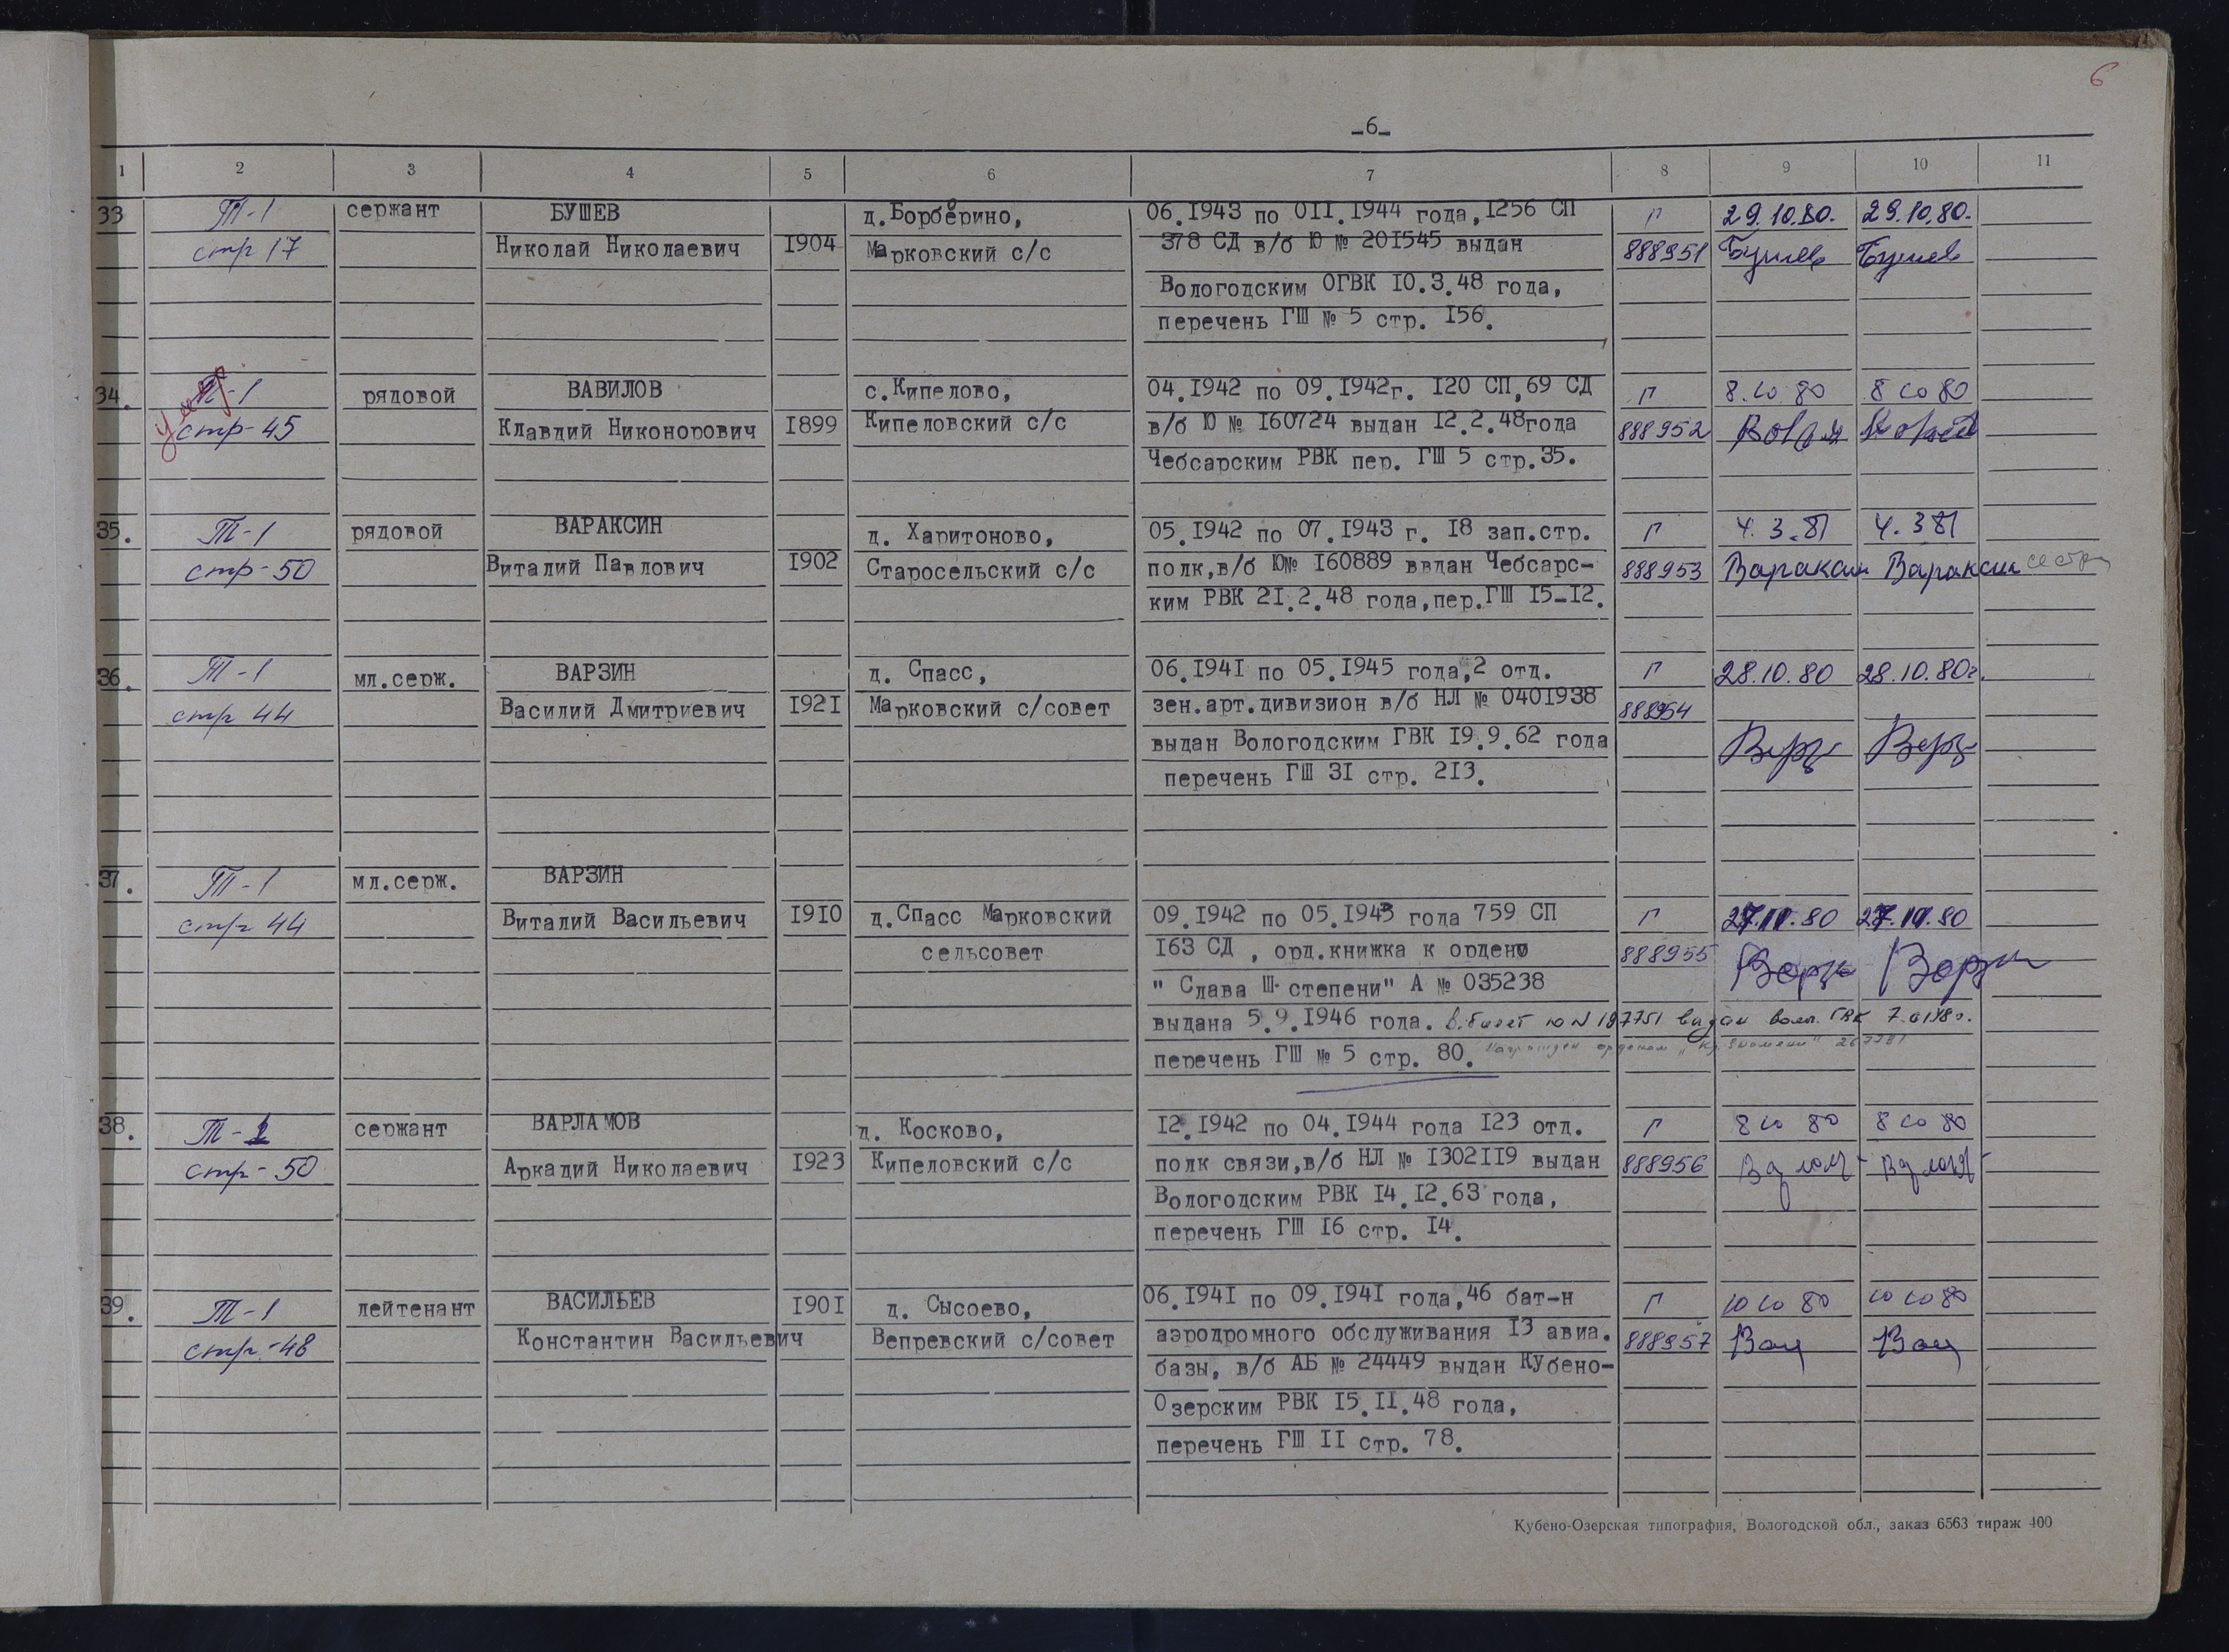 6
-6-
1 2 3 4 5 6 7 8 9 10 11
33 Т-1 сержант БУШЕВ д.Борберино, 06.1943 по 011.1944 года,1256 СП П 29.10.80. 29.10.80.
стр 17 Николай Николаевич 1904 Марковский с/с 378 СД в/б Ю № 201545 выдан 888951 Бушев Бушев
Вологодским ОГВК 10.3.48 года,
перечень ГШ № 5 стр. 156.
34. Т-1 рядовой ВАВИЛОВ с.Кипелово, 04.1942 по 09.1942г. 120 СП,69 СД П 8.10 80 8 10 80
стр-45 Клавдий Никонорович 1899 Кипеловский с/с в/б Ю № 160724 выдан 12.2.48года 888952
Чебсарским РВК пер. ГШ 5 стр.35.
35. Т-1 рядовой ВАРАКСИН д. Харитоново, 05.1942 по 07.1943 г. 18 зап.стр. П 4.3.81 4.3 81
стр-50 Виталий Павлович 1902 Старосельский с/с полк,в/б Ю№ 160889 ввдан Чебсарс- 888953 Вараксин Вараксин сестра
ким РВК 21.2.48 года,пер.ГШ 15-12.
36. Т-1 мл.серж. ВАРЗИН д. Спасс, 06.1941 по 05.1945 года,2 отд. П 28.10.80 28.10.80г.
стр 44 Василий Дмитриевич 1921 Марковский с/совет зен.арт.дивизион в/б НЛ № 0401938 888954
выдан Вологодским ГВК 19.9.62 года
перечень ГШ 31 стр. 213.
37. Т-1 мл.серж. ВАРЗИН
стр 44 Виталий Васильевич 1910 д.Спасс Марковский 09.1942 по 05.1943 года 759 СП П 27.11.80 27.11.80
сельсовет 163 СД , орд.книжка к ордену 888955
" Слава Ш степени" А № 035238
выдана 5.9.1946 года. в.билет ю N 187751 выдан волог. ГВК
перечень ГШ № 5 стр. 80. награжден орденом "Кр. Знамени"
38. Т-1 сержант ВАРЛАМОВ д. Косково, 12.1942 по 04.1944 года 123 отд. П 8 10 80 8 10 80
стр-50 Аркадий Николаевич 1923 Кипеловский с/с полк связи,в/б НЛ № 1302119 выдан 888956
Вологодским РВК 14.12.63 года,
перечень ГШ 16 стр. 14.
39. Т-1 лейтенант ВАСИЛЬЕВ 1901 д. Сысоево, 06.1941 по 09.1941 года,46 бат-н П 10 10 80 10 10 80
стр-48 Константин Васильевич Вепревский с/совет аэродромного обслуживания 13 авиа. 888957 Вас Вас
базы, в/б АБ № 24449 выдан Кубено-
Озерским РВК 15.11.48 года,
перечень ГШ 11 стр. 78.
Кубено-Озерская типография, Вологодской обл., заказ 6563 тираж 400